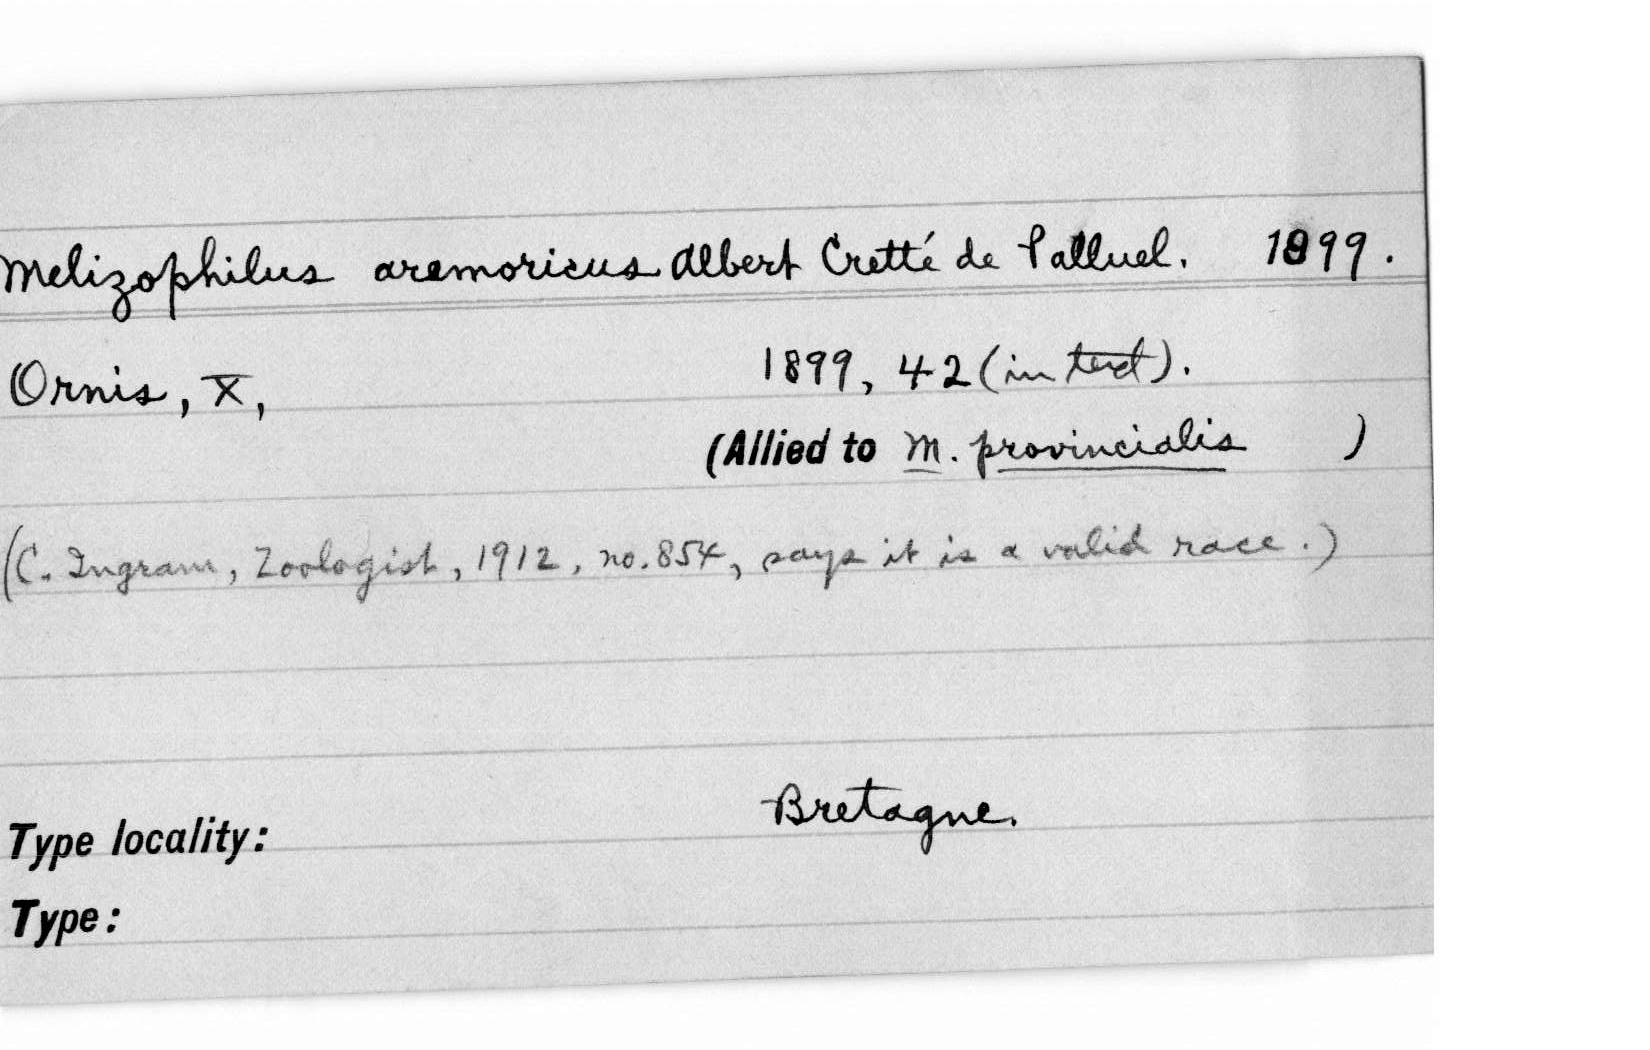 Melizophilus aremoricus Albert Cretté de Palluel. 1899.
Ornis, X, 1899, 42 (in text).
(Allied to M. provincialis )
(C. Ingram, Zoologist, 1912, no. 854, says it is a valid race.)
Type locality: Bretagne.
Type: